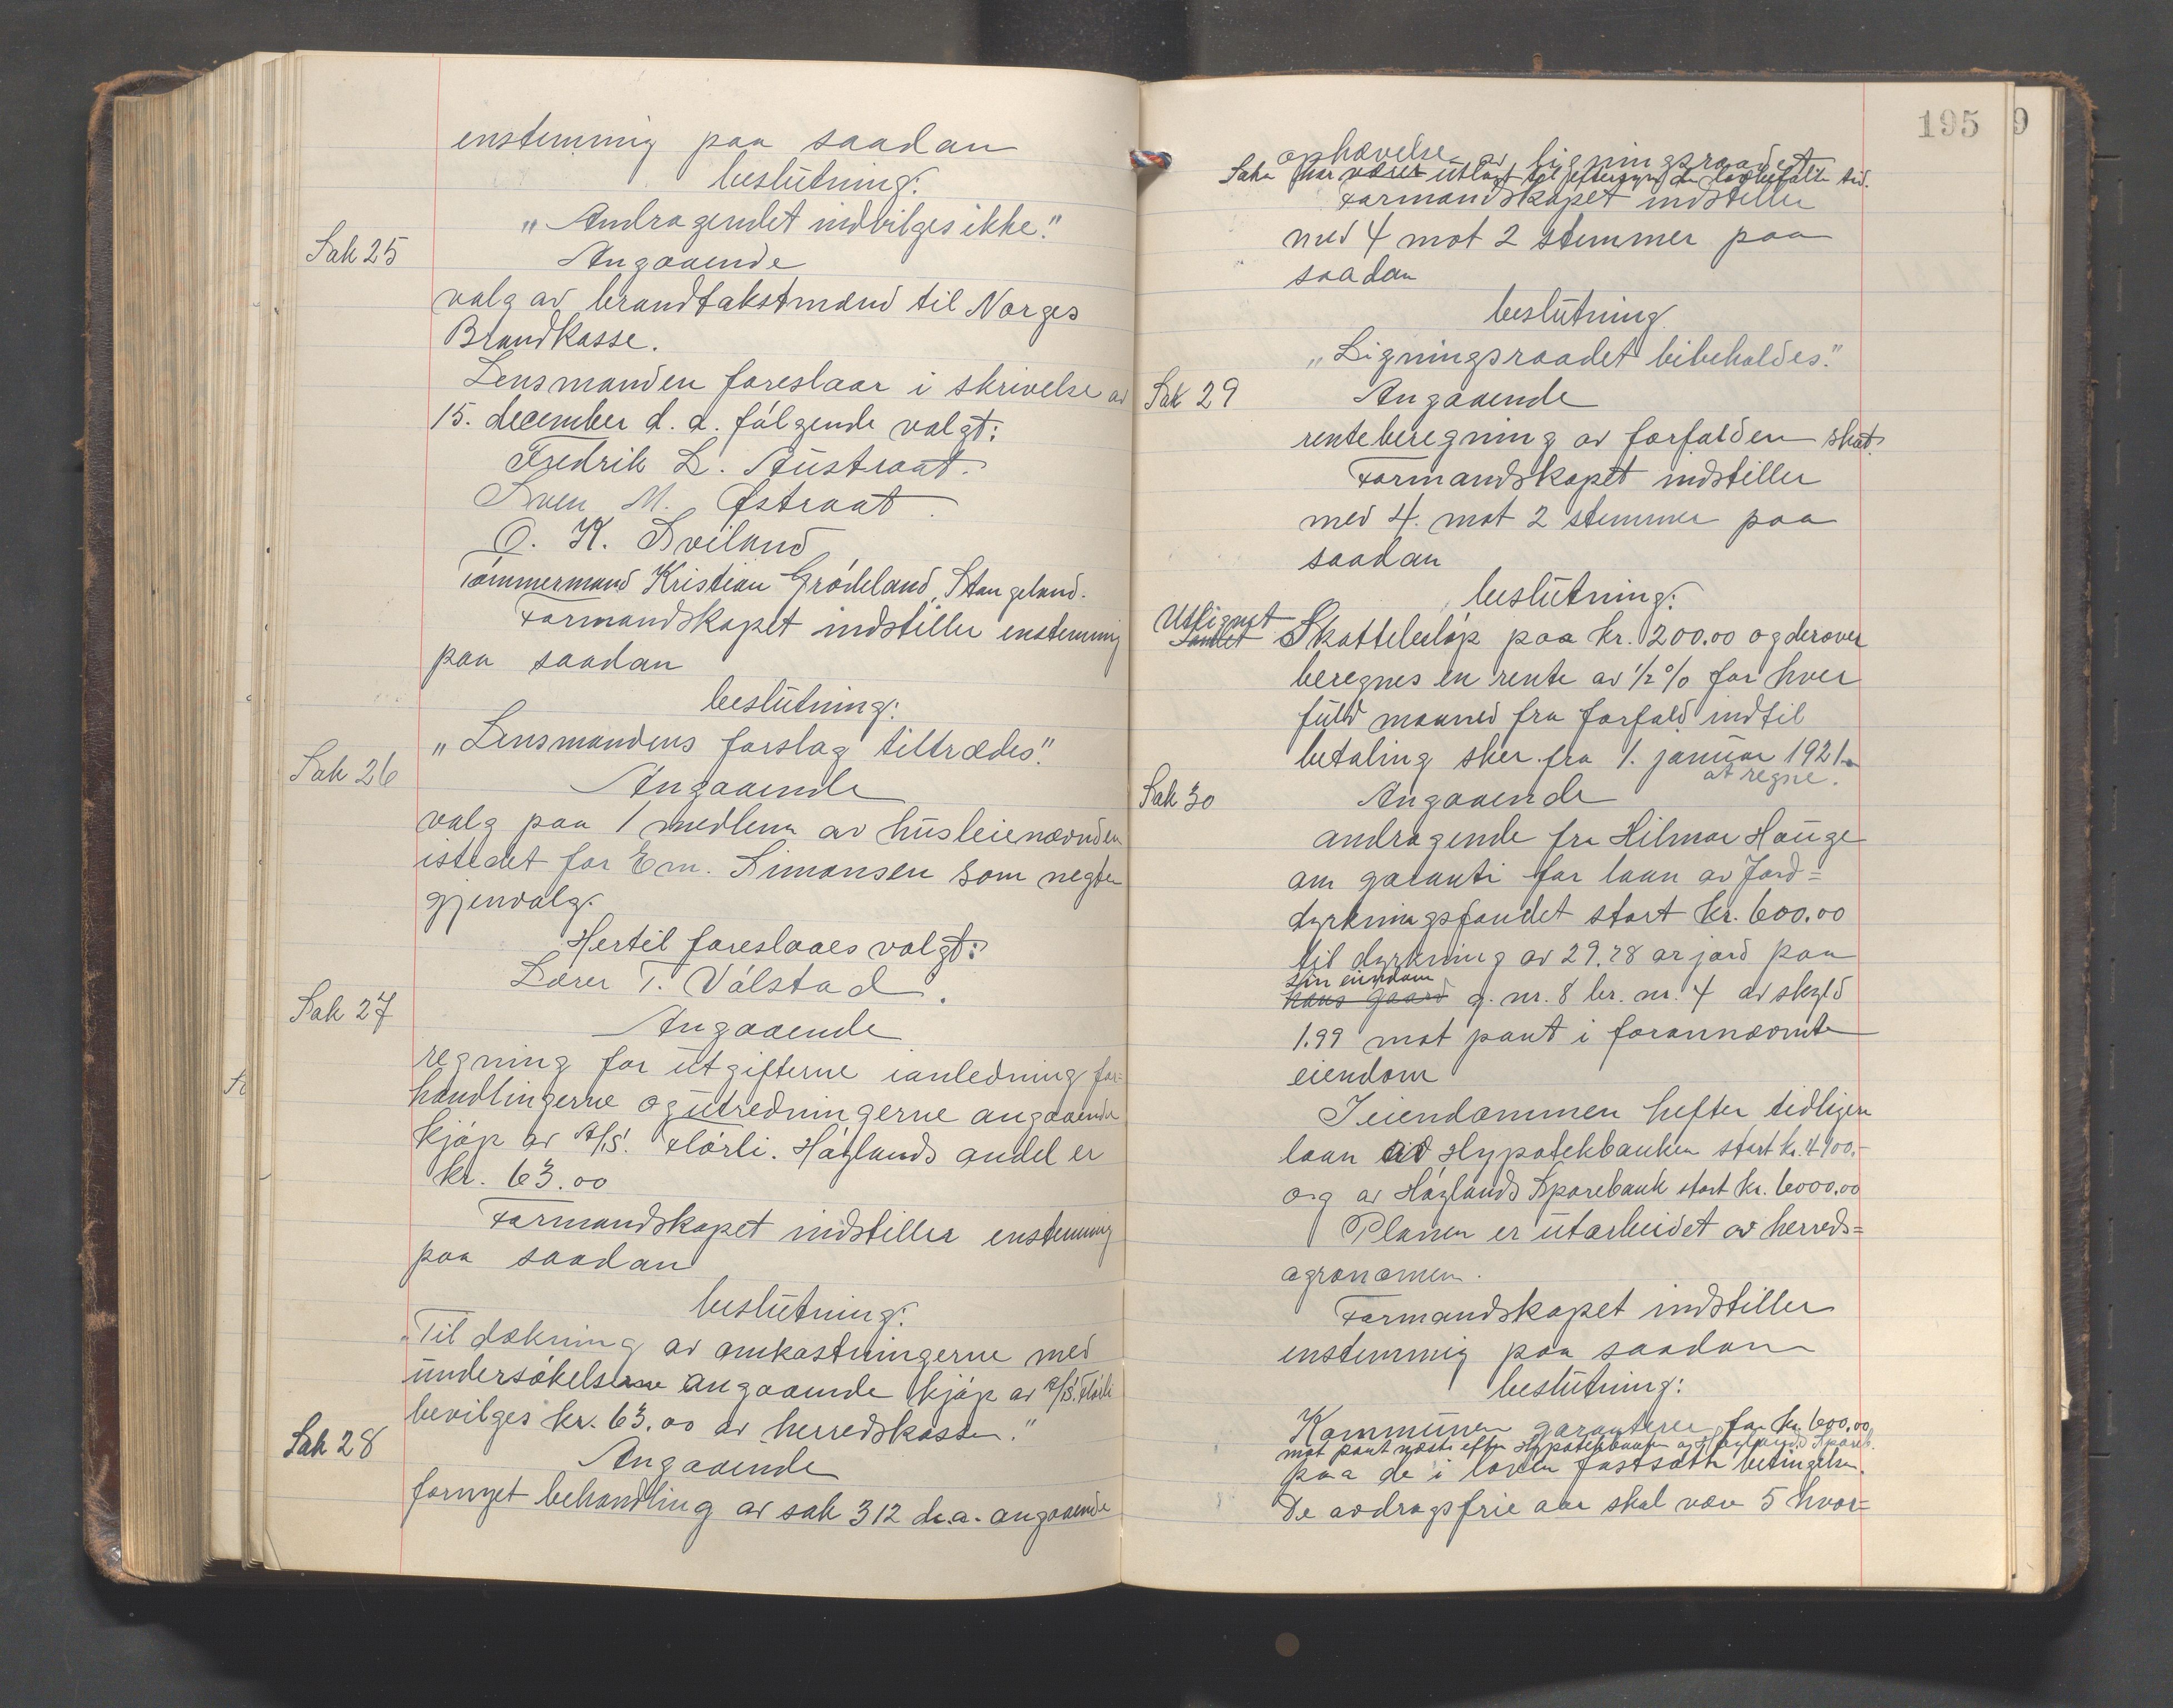 enstemmig paa saadan
beslutning:
„Andragendet indvilges ikke."
Sak 25
Angaaende
valg av brandtakstmænd til Norges
Brandkasse.
Lensmanden foreslaar i skrivelse av
15. december d. a. følgende valgt:
Fredrik L. Austraat.
Sven M. Østraat.
O. K. Sviland
Tømmermand Kristian Grødeland, Stangeland.
Formandskapet indstiller enstemmig
paa saadan
beslutning:
„Lensmandens forslag tiltrædes."
Sak 26
Angaaende
valg paa 1 medlem av husleienævnden
istedet for Em. Simonsen som negter
gjenvalg.
Hertil foreslaaes valgt:
Lærer T. Vølstad.
Sak 27
Angaaende
regning for utgifterne ianledning for=
handlingerne og utredningerne angaaende
kjøp av A/S. Flørli. Høylands andel er
kr. 63.00
Formandskapet indstiller enstemmig
paa saadan
beslutning:
„Til dækning av omkostningerne med
undersøkelserne angaaende kjøp av A/S. Flørli
bevilges kr. 63.00 av herredskassen."
Sak 28
Angaaende
fornyet behandling av sak 312 d.a. angaaende
195
9
ophævelse av ligningsraadet
Saken har været utlagt til eftersyn den lovbefalte tid.
Formandskapet indstiller
med 4 mot 2 stemmer paa
saadan
beslutning
„Ligningsraadet bibeholdes."
Sak 29
Angaaende
renteberegning av forfalden skat.
Formandskapet indstiller
med 4. mot 2 stemmer paa
saadan
beslutning:
Utlignet
Samlet Skattebeløp paa kr. 200.00 og derover
beregnes en rente av 1/2 % for hver
fuld maaned fra forfald indtil
betaling sker fra 1. januar 1921
at regne.
Sak 30
Angaaende
andragende fra Hilmar Hauge
om garanti for laan av Jord=
dyrkningsfondet stort kr. 600.00
til dyrkning av 29.28 ar jord paa
sin eiendom
hans gaard g. nr. 8 br. nr. 4 av skyld
1.99 mot pant i forannævnte
eiendom
I eiendommen hefter tidligere
laan av Hypotekbanken stort kr. 4100.-
og av Høylands Sparebank stort kr. 6000.00
Planen er utarbeidet av herreds=
agronomen.
Formandskapet indstiller
enstemmig paa saadan
beslutning:
Kommunen garanterer for kr. 600.00
mot pant næst efter Hypotekbanken og Høylands Spareb.
paa de i loven fastsatte betingelser.
De avdragsfrie aar skal være 5 hvor=